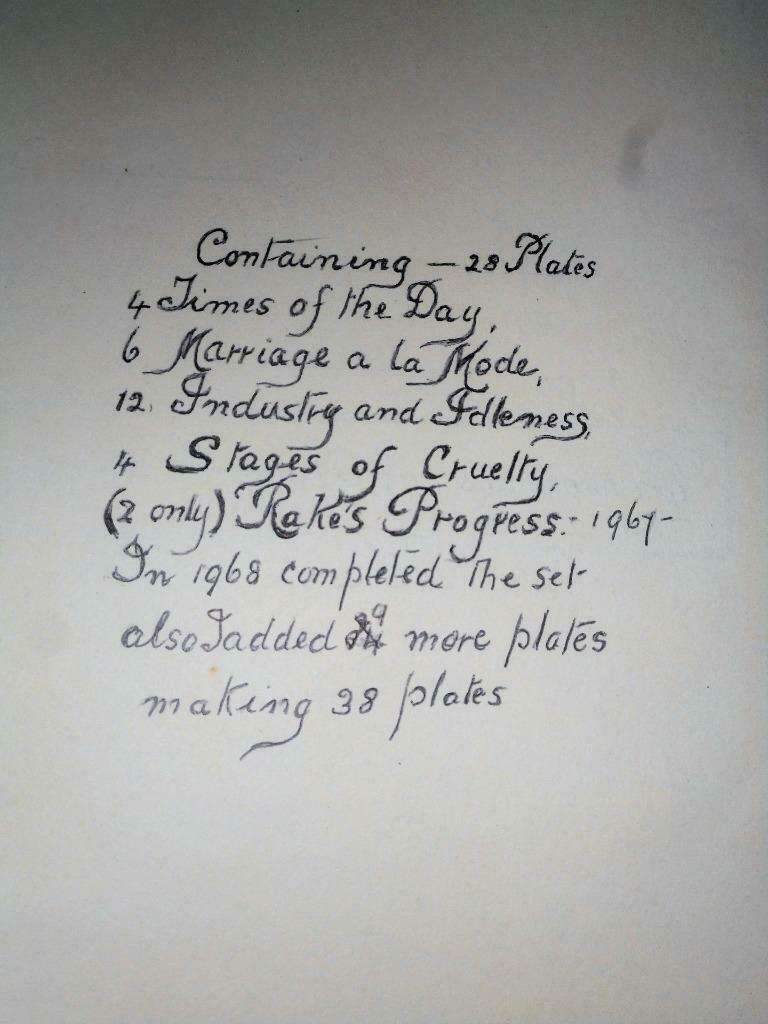 Containing – 28 Plates
4 Times of the Day,
6 Marriage a la Mode,
12. Industry and Idleness,
4 Stages of Cruelty,
(2 only) Rake's Progress:- 1967-
In 1968 completed the set
also I added 9 more plates
making 38 plates